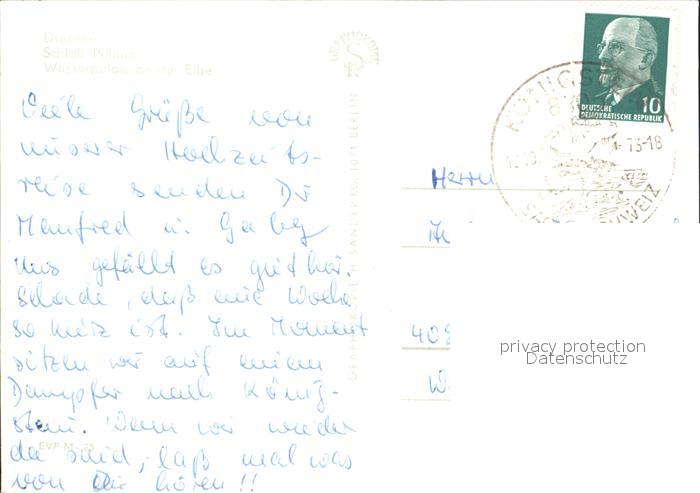 Dresden
Schloß Pillnitz
Wasserpalais an der Elbe
Viele Grüße von
unserer Hochzeits-
reise senden Dir
Manfred u. Gaby
Uns gefällt es gut hier.
Schade, daß die Woche
so kurz ist. Im Moment
sitzen wir auf einem
Dampfer nach König-
stein. Wenn wir wieder
da sind, laß mal was
von Dir hören!!
EVP M -,25
GRAPHOKOPIE H. SANDER KG, 1071 BERLIN
GRAPHOKOPIE
DEUTSCHE
DEMOKRATISCHE REPUBLIK
10
KÖNIGST
73-18
Herrn
privacy protection
Datenschutz